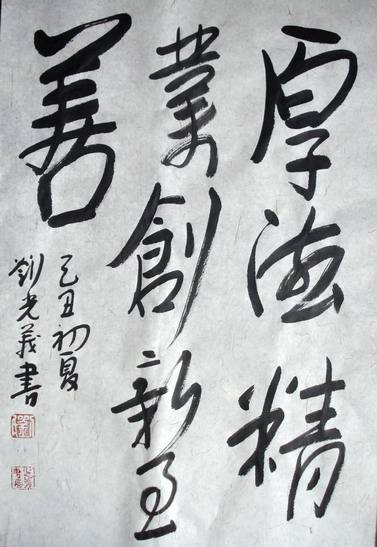 厚德精
業創新至
善
己丑初夏
劉光義書